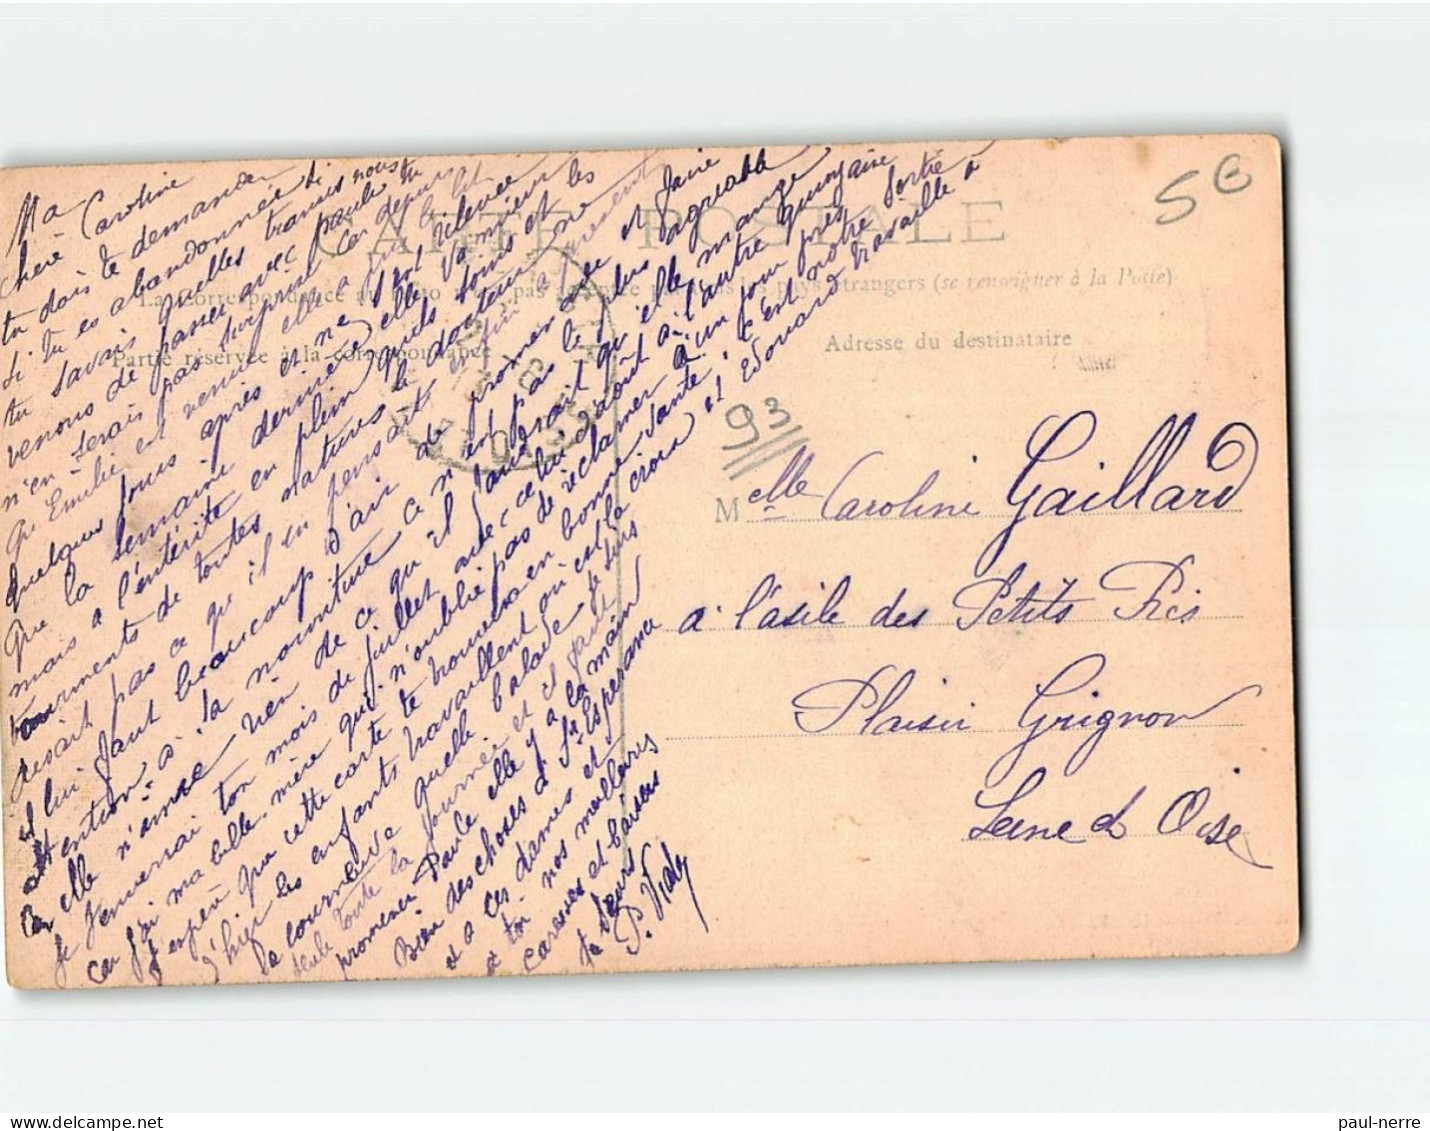 CARTE POSTALE
La correspondance au recto n'est pas pays étrangers (se renseigner à la Poste)
Partie réservée à la correspondance
Adresse du destinataire
5 €
93
Ma
chère Caroline
tu dois te demander
si tu es abandonnée si
tu savais quelles transes nous
venons de passer avec Paule tu
n'en serais pas surprise car depuis
qu'Emilie est venue elle a pris le lit
quelques jours après et ne s'est relevée
que la semaine dernière elle
mais a l'entérite en plein
tourments de toutes natures le docteur
disait pas ce qu'il en pensait enfin
il lui faut beaucoup d'air de
attention à la nourriture ce n'est pas le plus agréable
car elle n'aime rien de ce qu'il faudrait qu'elle mange
je t'enverrai ton mois de juillet avec celui d'août à l'autre quinzaine
car j'ai ma belle-mère qui n'oublie pas de réclamer à un jour près
j'espère que cette carte te trouvera en bonne santé, c'est notre sortie
d'hier les enfants travaillent où est la croix et Edouard travaille à
la tournure quelle balade je suis
seule toute la journée et il faut
promener Paule elle y a la main
Bien des choses à Sr Espérance
et à ces dames et
à toi nos meilleures
caresses et baisers
ta sœur
P. Vial
Melle Caroline Gaillard
a l'asile des Petits Prés
Plaisir Grignon
Seine et Oise
paul-nerre